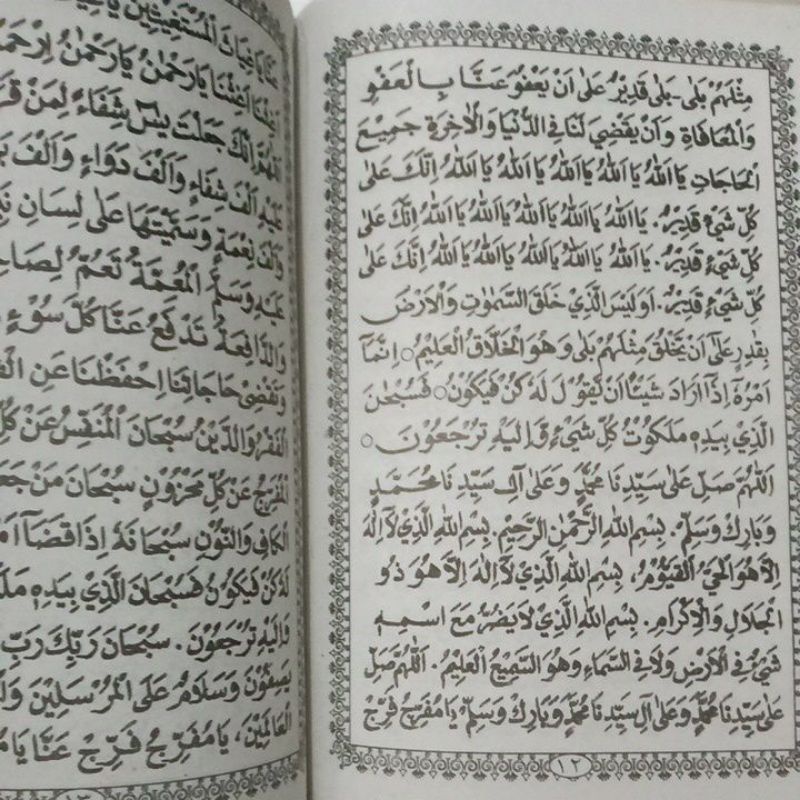 مِثْلَهُمْ بَلٰى - بَلٰى قَدِيْرٌ عَلٰى اَنْ يَعْفُوَ عَنَّا بِالْعَفْوِ
وَالْمُعَافَاةِ وَاَنْ يَقْضِيَ لَنَا فِى الدُّنْيَا وَالْاٰخِرَةِ جَمِيْعَ
الْحَاجَاتِ يَا اَللّٰهُ يَا اَللّٰهُ يَا اَللّٰهُ يَا اَللّٰهُ يَا اَللّٰهُ اِنَّكَ عَلٰى
كُلِّ شَيْءٍ قَدِيْرٌ. يَا اَللّٰهُ يَا اَللّٰهُ يَا اَللّٰهُ يَا اَللّٰهُ يَا اَللّٰهُ اِنَّكَ عَلٰى
كُلِّ شَيْءٍ قَدِيْرٌ. يَا اَللّٰهُ يَا اَللّٰهُ يَا اَللّٰهُ يَا اَللّٰهُ يَا اَللّٰهُ اِنَّكَ عَلٰى
كُلِّ شَيْءٍ قَدِيْرٌ. اَوَلَيْسَ الَّذِيْ خَلَقَ السَّمٰوٰتِ وَالْاَرْضَ
بِقٰدِرٍ عَلٰٓى اَنْ يَخْلُقَ مِثْلَهُمْ بَلٰى وَهُوَ الْخَلَّاقُ الْعَلِيْمُ ○ اِنَّمَآ
اَمْرُهٗٓ اِذَآ اَرَادَ شَيْئًا اَنْ يَّقُوْلَ لَهٗ كُنْ فَيَكُوْنُ ○ فَسُبْحٰنَ
الَّذِيْ بِيَدِهٖ مَلَكُوْتُ كُلِّ شَيْءٍ وَّاِلَيْهِ تُرْجَعُوْنَ ○
اَللّٰهُمَّ صَلِّ عَلٰى سَيِّدِنَا مُحَمَّدٍ وَعَلٰى اٰلِ سَيِّدِنَا مُحَمَّدٍ
وَبَارِكْ وَسَلِّمْ. بِسْمِ اللّٰهِ الرَّحْمٰنِ الرَّحِيْمِ. بِسْمِ اللّٰهِ الَّذِيْ لَآ اِلٰهَ
اِلَّا هُوَ الْحَيُّ الْقَيُّوْمُ، بِسْمِ اللّٰهِ الَّذِيْ لَآ اِلٰهَ اِلَّا هُوَ ذُو
الْجَلَالِ وَالْاِكْرَامِ. بِسْمِ اللّٰهِ الَّذِيْ لَا يَضُرُّ مَعَ اسْمِهٖ
شَيْءٌ فِى الْاَرْضِ وَلَا فِى السَّمَآءِ وَهُوَ السَّمِيْعُ الْعَلِيْمُ. اَللّٰهُمَّ صَلِّ
عَلٰى سَيِّدِنَا مُحَمَّدٍ وَعَلٰى اٰلِ سَيِّدِنَا مُحَمَّدٍ وَبَارِكْ وَسَلِّمْ يَا مُفَرِّجُ فَرِّجْ
١٢
عَنَّا يَاغِيَاثَ الْمُسْتَغِيْثِيْنَ
اَغِثْنَا يَارَحْمٰنُ يَارَحْمٰنُ
اِنَّكَ جَعَلْتَ يٰسٓ شِفَاءً لِمَنْ
عَلَيْهِ اَلْفَ شِفَاءٍ وَاَلْفَ دَوَاءٍ وَاَلْفَ
وَاَلْفَ نِعْمَةٍ وَسَمَّيْتَهَا عَلٰى لِسَانِ
عَلَيْهِ وَسَلَّمَ الْمُعِمَّةُ تَعُمُّ
وَالدَّافِعَةُ تَدْفَعُ عَنَّا كُلَّ سُوْءٍ
وَتَقْضِيْ حَاجَاتِنَا اِحْفَظْنَا عَنِ
الْفَقْرِ وَالدَّيْنِ سُبْحَانَ الْمُنَفِّسِ عَنْ
الْمُفَرِّجِ عَنْ كُلِّ مَحْزُوْنٍ سُبْحَانَ مَنْ
الْكَافِ وَالنُّوْنِ سُبْحَانَهٗ اِذَا قَضَآ
لَهٗ كُنْ فَيَكُوْنُ فَسُبْحَانَ الَّذِيْ بِيَدِهٖ
وَاِلَيْهِ تُرْجَعُوْنَ. سُبْحَانَ رَبِّكَ رَبِّ
يَصِفُوْنَ وَسَلَامٌ عَلَى الْمُرْسَلِيْنَ
الْعَالَمِيْنَ، يَا مُفَرِّجُ فَرِّجْ عَنَّا